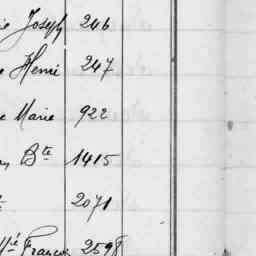 Joseph 246
Henri 247
Marie 922
Bte 1415
2071
François 2598